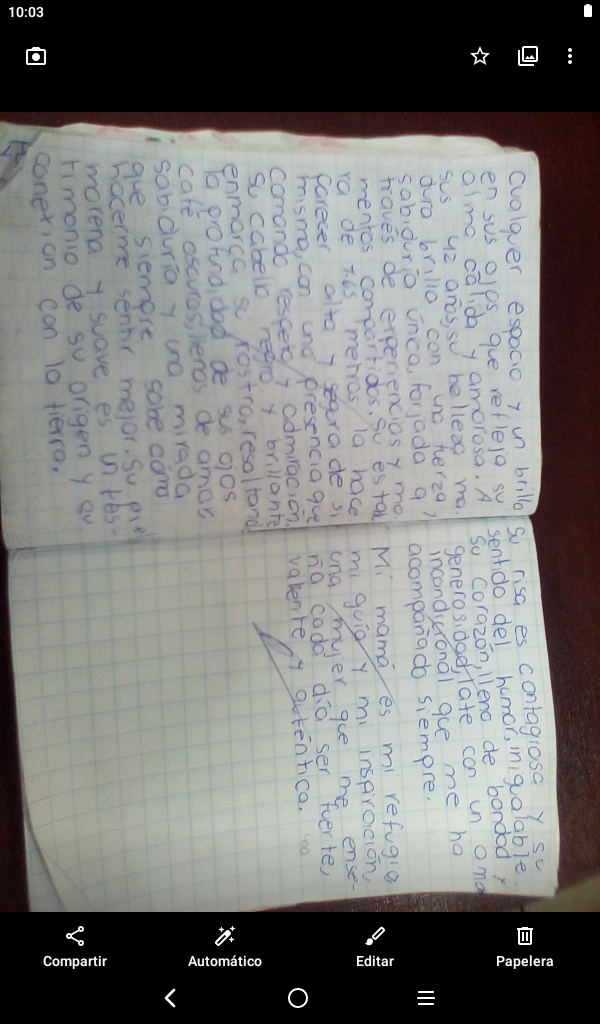 10:03
cualquer espacio y un brillo
en sus ojos que refleja su
alma cálida y amorosa. A
sus 42 años, su belleza ma
dura brilla con una fuerza y
sabiduría única, forjada a
través de experiencias y mo
mentos compartidos. Su estatu
ra de 1.65 metros la hace
parecer alta y segura de si
misma, con una presencia que
comanda respeto y admiración.
Su cabello negro y brillante
enmarca su rostro, resaltando
la profundidad de sus ojos
café oscuros, llenos de amor,
sabiduría y una mirada
que siempre sabe cómo
hacerme sentir mejor. Su piel
morena y suave es un tes-
timonio de su origen y su
conexion con la tierra.
Su risa es contagiosa y su
sentido del humor, inigualable.
Su corazón, lleno de bondad y
generosidad, late con un amor
incondicional que me ha
acompañado siempre.
Mi mamá es mi refugio
mi guía y mi inspiración,
una mujer que me ense-
ña cada día ser fuerte,
valiente y auténtica.
Compartir
Automático
Editar
Papelera